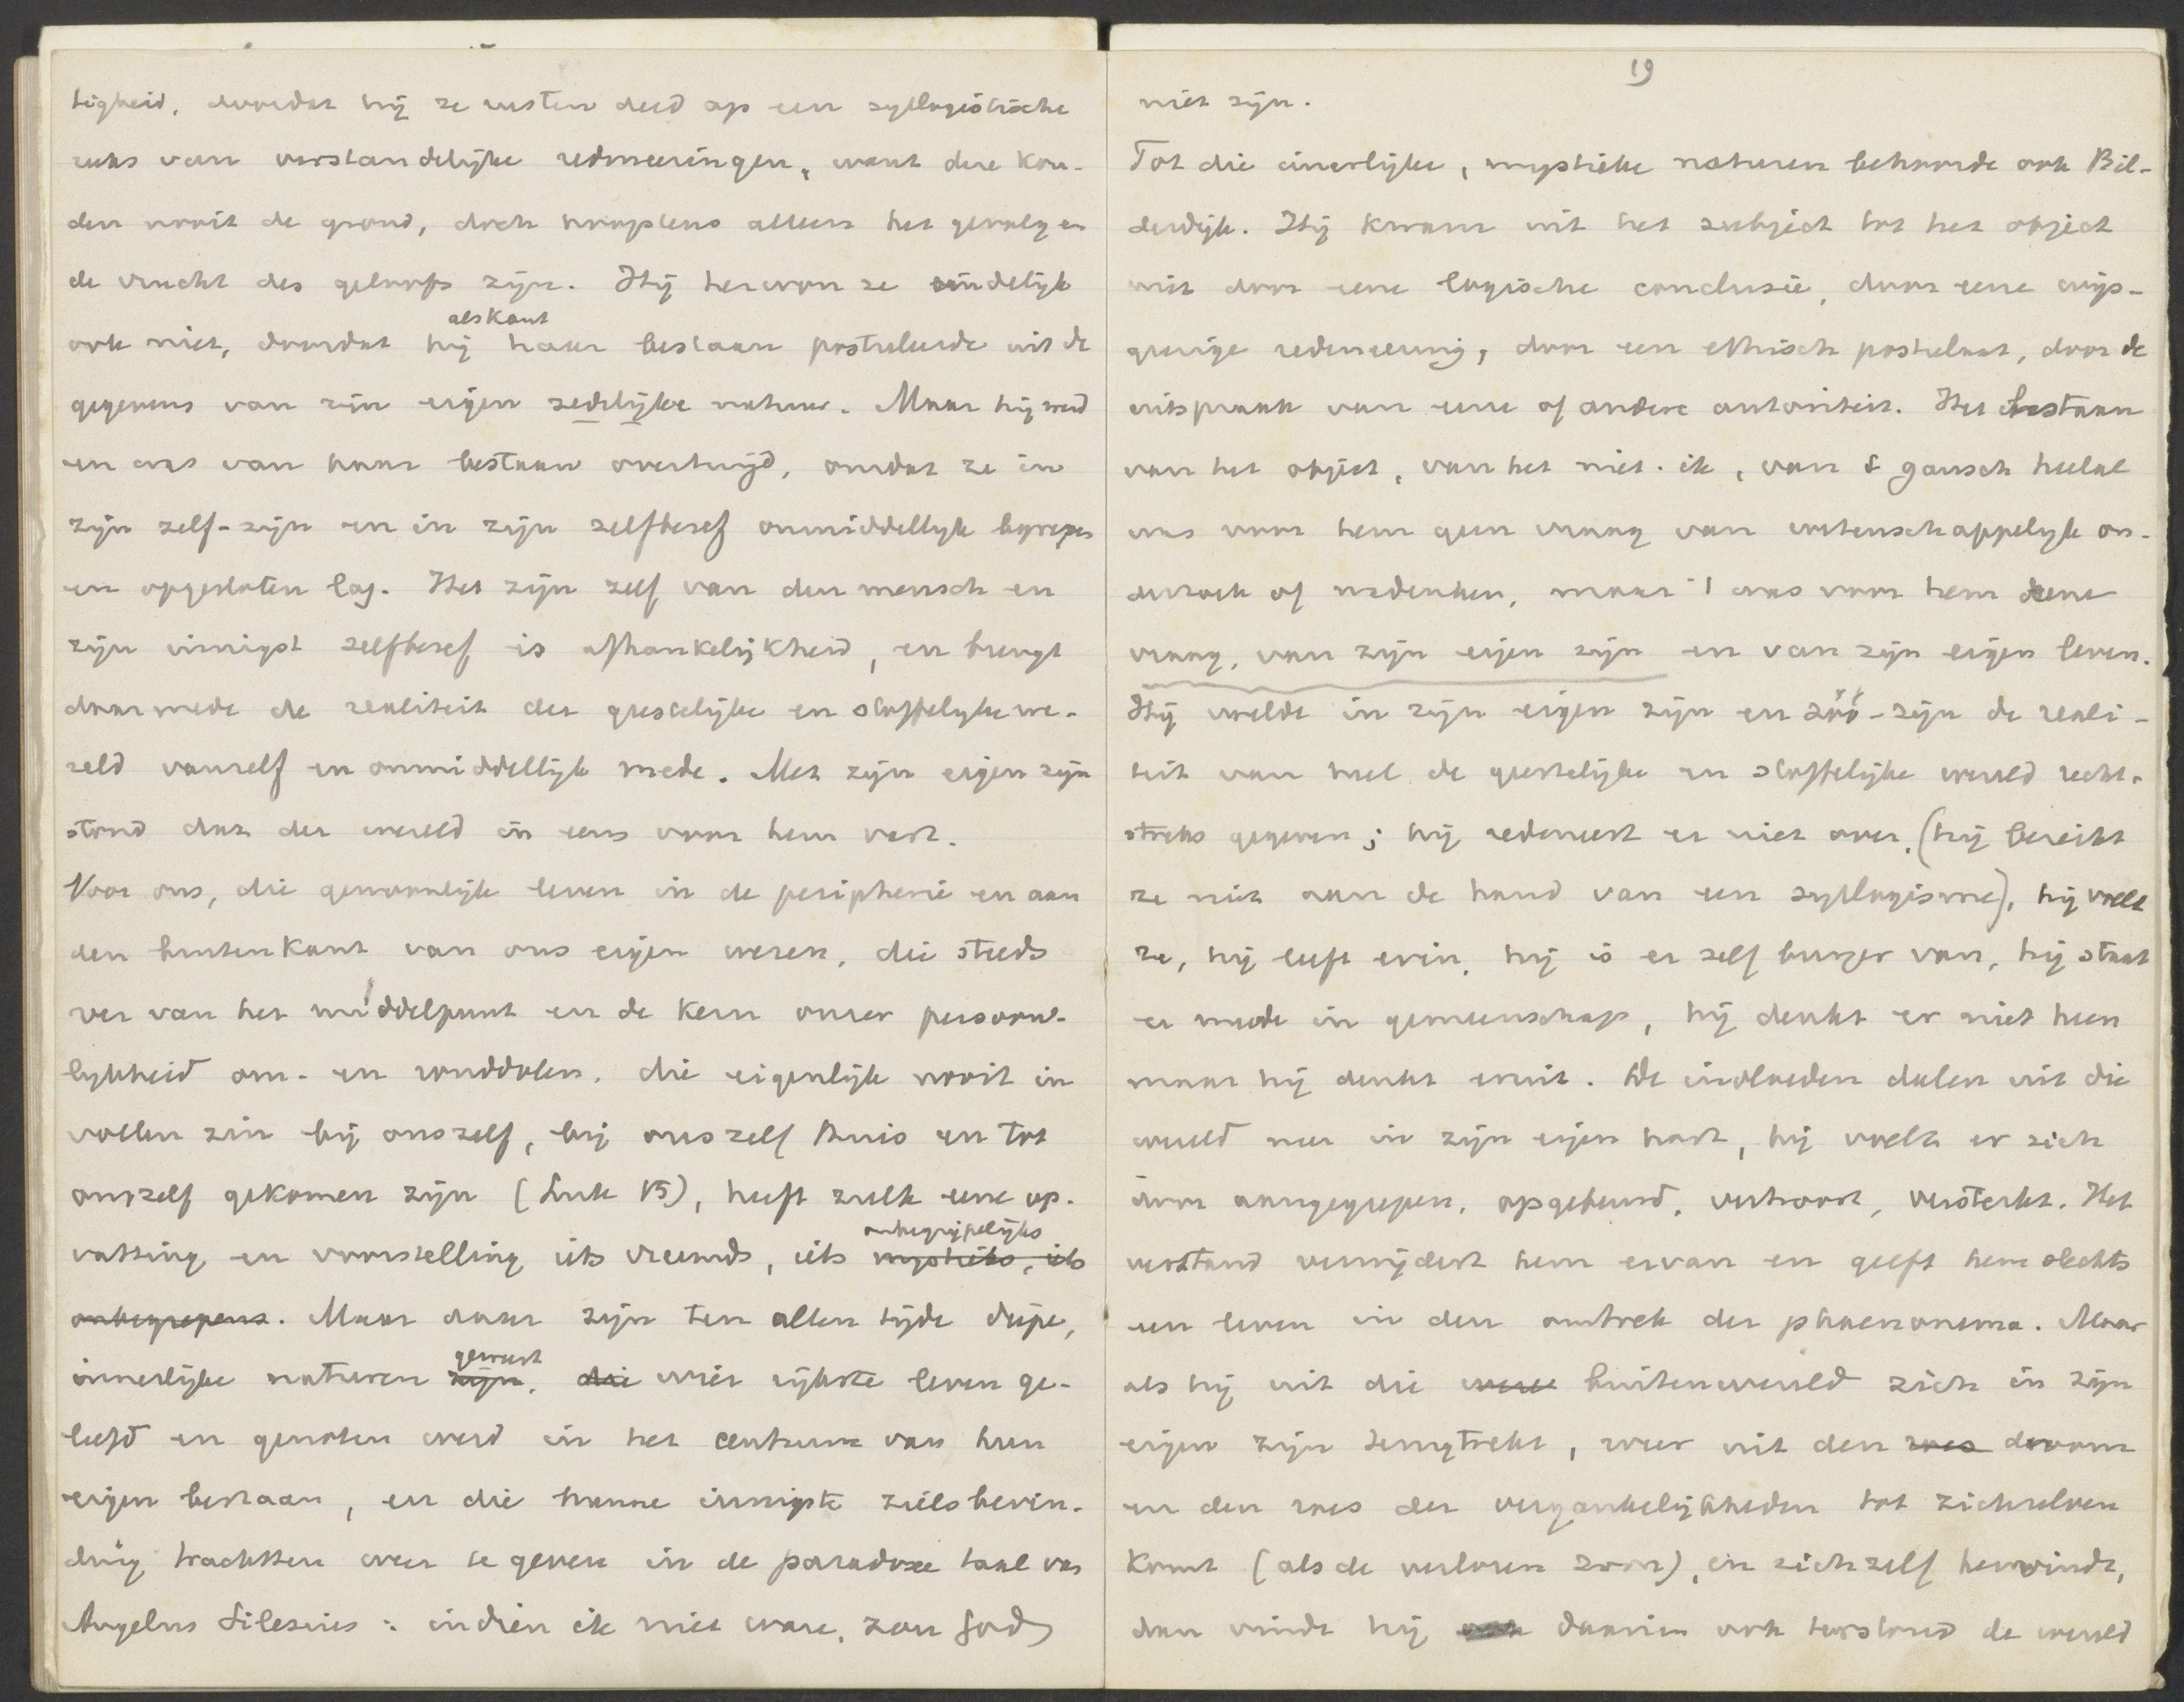 tigheid, doordat hij ze rusten deed op een syllogistische
reeks van verstandelijke redeneeringen, want deze kon-
den nooit de grond, doch hoogstens alleen het gevolg en
de vrucht des geloofs zijn. Hij herwon ze eindelijk
ook niet, doordat hij als Kant haar bestaan postuleerde uit de
gegevens van zijn eigen zedelijke natuur. Maar hij werd
en was van haar bestaan overtuigd, omdat ze in
zijn zelf-zijn en in zijn zelfbesef onmiddellijk begrepen
en opgesloten lag. Het zijn zelf van den mensch en
zijn innigst zelfbesef is afhankelijkheid, en brengt
daarmede de realiteit der geestelijke en stoffelijke we-
reld vanzelf en onmiddellijk mede. Met zijn eigen zijn
stond dat der wereld in eens voor hem vast.
Voor ons, die gewoonlijk leven in de peripherie en aan
den buitenkant van ons eigen wezen, die steeds
ver van het middelpunt en de kern onzer persoon-
lijkheid om- en ronddolen, die eigenlijk nooit in
vollen zin bij onszelf, bij onszelf thuis en tot
onszelf gekomen zijn (Luk 15), heeft zulk eene op-
vatting en voorstelling iets vreemds, iets onbegrijpelijks mystieks, iets
onbegrepens. Maar daar zijn ten allen tijde diepe,
innerlijke naturen geweest zijn, die wier rijkste leven ge-
leefd en genoten werd in het centrum van hun
eigen bestaan, en die hunne innigste zielsbevin-
ding trachtten weer te geven in de paradoxe taal van
Angelus Silesius: indien ik niet ware, zou God
19
niet zijn.
Tot die innerlijke, mystieke naturen behoorde ook Bil-
derdijk. Hij kwam uit het subject tot het object
niet door eene logische conclusie, door eene wijs-
geerige redeneering, door een ethisch postulaat, door de
uitspraak van eene of andere autoriteit. Het bestaan
van het object, van het niet-ik, van 't gansch heelal
was voor hem geen vraag van wetenschappelijk on-
derzoek of nadenken, maar 't was voor hem eene
vraag, van zijn eigen zijn en van zijn eigen leven.
Hij voelde in zijn eigen zijn en zóó-zijn de reali-
teit van heel de geestelijke en stoffelijke wereld recht-
streeks gegeven; hij redeneert er niet over, (hij bereikt
ze niet aan de hand van een syllogisme), hij voelt
ze, hij leeft erin, hij is er zelf burger van, hij staat
er mede in gemeenschap, hij denkt er niet heen
maar hij denkt eruit. De invloeden dalen uit die
wereld neer in zijn eigen hart, hij voelt er zich
door aangegrepen, opgebeurd, vertroost, versterkt. Het
verstand verwijdert hem ervan en geeft hem slechts
een leven in den omtrek der phaenomena. Maar
als hij uit die were buitenwereld zich in zijn
eigen zijn terugtrekt, weer uit den roes droom
en den roes der vergankelijkheden tot zichzelven
komt (als de verloren zoon), en zichzelf hervindt,
dan vindt hij ook daarin ook terstond de wereld